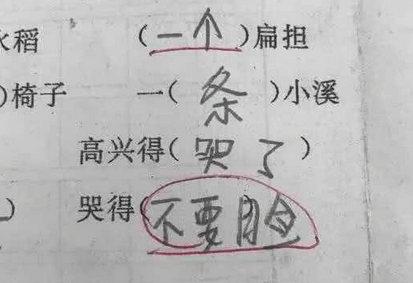 水稻 (一个)扁担
)椅子 一(条)小溪
高兴得(哭了)
) 哭得(不要脸